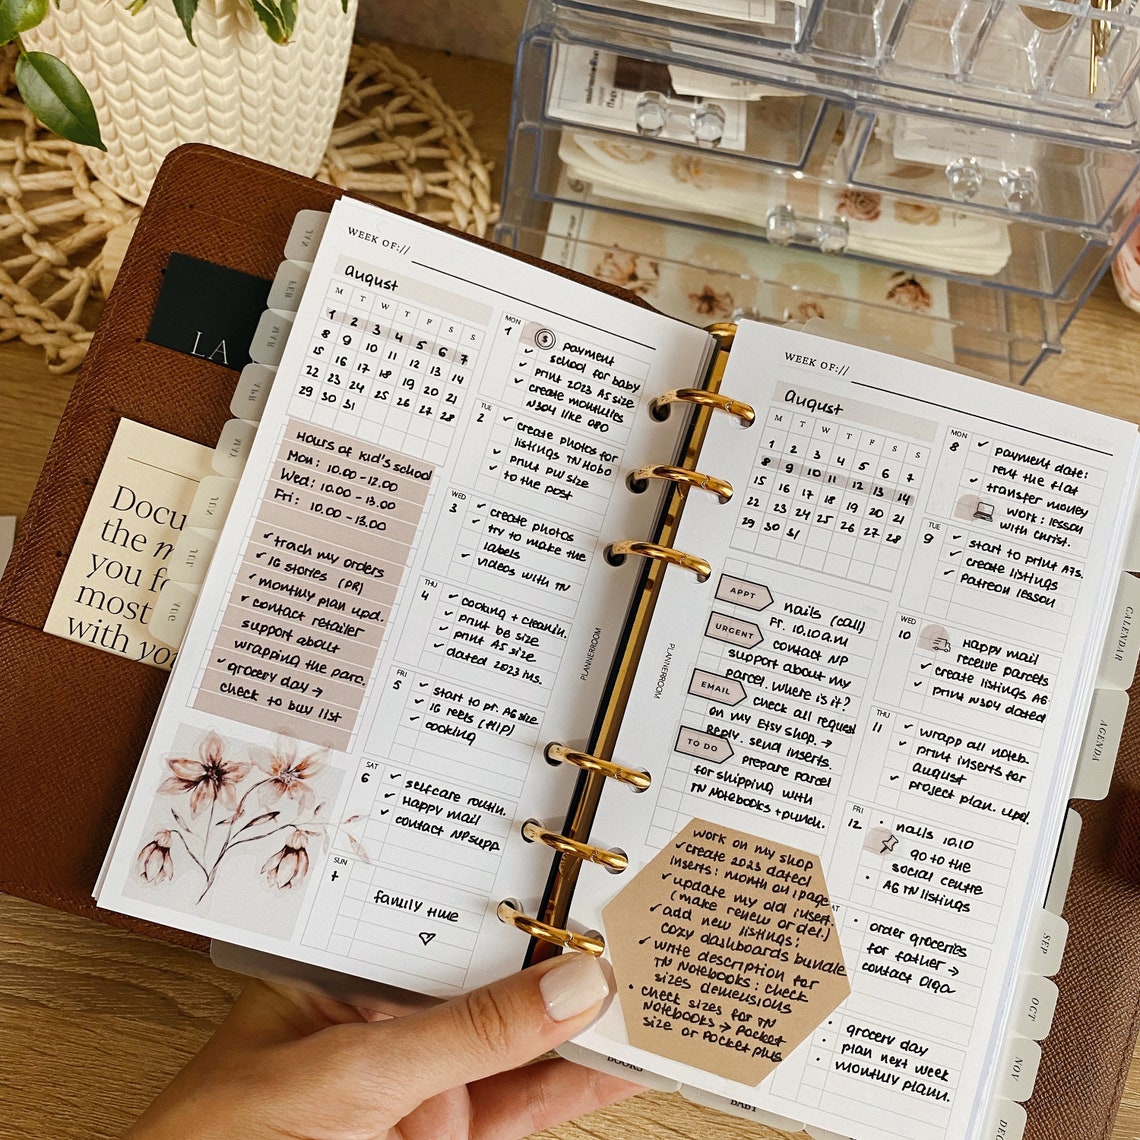 JAN
FEB
MAR
APR
MAY
JUN
JUL
AUG
LA
Docu
the m
you fo
most
with yo
WEEK OF://
august
M T W T F S S
1 2 3 4 5 6 7
8 9 10 11 12 13 14
15 16 17 18 19 20 21
22 23 24 25 26 27 28
29 30 31
Hours at kid's school
Mon: 10.00 - 12.00
Wed: 10.00 - 13.00
Fri: 10.00 - 13.00
✓ track my orders
✓ IG stories (PR)
✓ monthly plan upd.
✓ contact retailer
support about
wrapping the parc.
✓ grocery day →
check to buy list
MON
1
$ payment
✓ school for baby
✓ print 2023 A5 size
✓ create monthlies
N304 like 080
TUE
2
✓ create photos for
listings TN Hobo
✓ print PW size
✓ to the post
WED
3
✓ create photos
✓ try to make the
labels
✓ videos with TN
THU
4
✓ cooking + cleanin.
✓ print B6 size
✓ print A5 size
✓ dated 2023 ins.
FRI
5
✓ start to pr. A6 size
✓ IG reels (flip)
✓ cooking
SAT
6
✓ selfcare routin.
✓ Happy mail
✓ contact NP supp.
SUN
7
family time
♡
PLANNERROOM
WEEK OF://
august
M T W T F S S
1 2 3 4 5 6 7
8 9 10 11 12 13 14
15 16 17 18 19 20 21
22 23 24 25 26 27 28
29 30 31
APPT
nails (call)
Fr. 10.10 a.m
URGENT
contact NP
support about my
parcel. Where is it?
EMAIL
check all request
on my Etsy shop. →
Reply. send inserts.
TO DO
prepare parcel
for shipping with
TN Notebooks + punch.
work on my shop
✓ create 2023 dated
inserts: month on 1 page
✓ update my old insert.
(make renew or del.)
✓ add new listings:
cozy dashboards bundle
✓ write description for
TN Notebooks: check
sizes demensions
• check sizes for TN
Notebooks → Pocket
size or Pocket plus
PLANNERROOM
MON
8
✓ payment date:
rent the flat
✓ transfer money
work: lesson
with Christ.
TUE
9
✓ start to print A7s.
✓ create listings
✓ Patreon lesson
WED
10
Happy mail
receive parcels
✓ create listings A6
✓ print N304 dated
THU
11
✓ wrapp all noteb.
✓ print inserts for
august
✓ project plan. upd.
FRI
12
• nails 10.10
go to the
social centre
• A6 TN listings
AT
• order groceries
for father →
contact Olga
• grocery day
• plan next week
• monthly plann.
CALENDAR
AGENDA
SEP
OCT
NOV
DEC
BOOKS
BABY